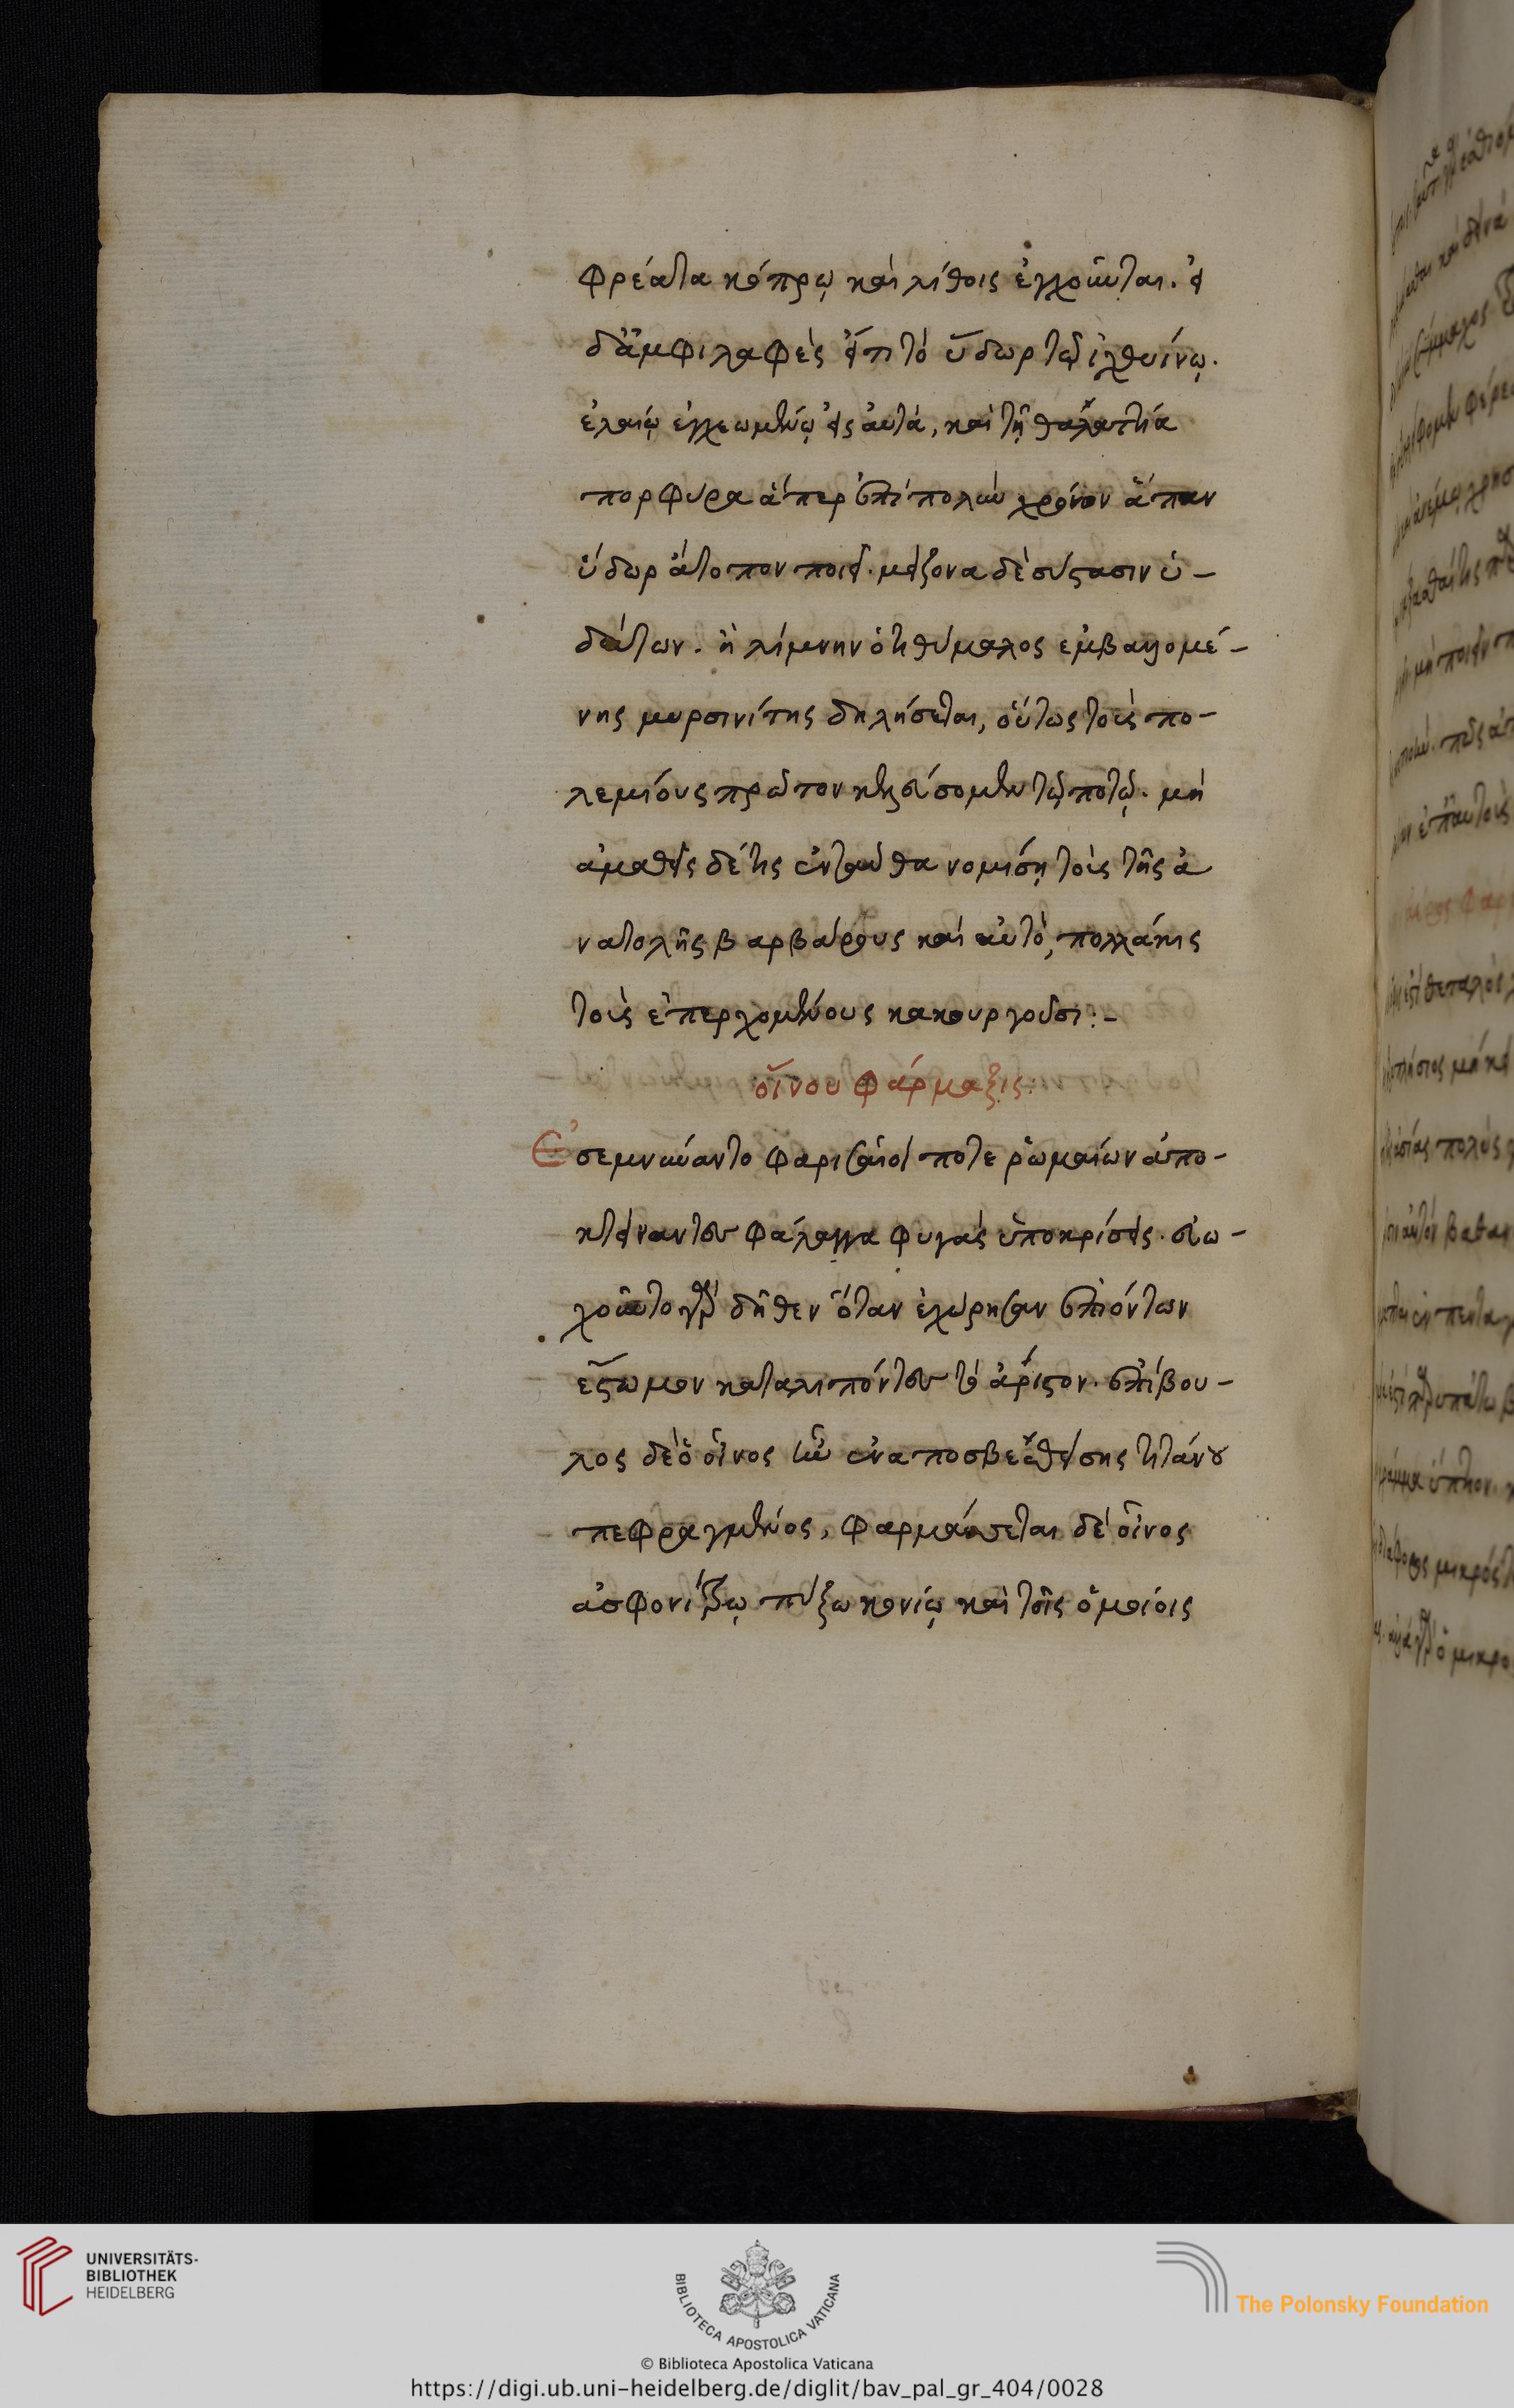 φρέατα κόπρω καὶ λίθοις ἐγχοῦνται. εἰ
δ' ἀμφιλαφὲς εἴπι τὸ ὕδωρ τῶ ἰχθυίνω.
ἐλαίω ἐγχεωμένω εἰς αὐτά, καὶ τῆ θαλαττία
πορφύρα ἅπερ ἐπὶ πολὺν χρόνον ἅπαν
ὕδωρ ἄτοπον ποιεῖ. μείζονα δὲ σύστασιν ὑ-
δάτων. ἢ λίμνην ὁ τιθύμαλος ἐμβαλλομέ-
νης μυρσινίτης δηλήσεται, οὕτως τοὺς πο-
λεμίους πρῶτον καταστήσομεν τῶ ποτῶ. μὴ
ἀμαθεῖς δέ τις ἐνταῦθα νομίση τοὺς τῆς ἀ
νατολῆς βαρβάρους καὶ αὐτὸ, πολλάκις
τοὺς ἐπερχομένους κακουργοῦσι:-
οἴνου φάρμαξις:
Ἐσεμνύναντο φαρισαῖοί ποτε ῥωμαίων ἀπο-
κτείναντες φάλαγγα φυγὰς ὑποκρίσεις. σιω-
χοῦντο γὰρ δῆθεν ὅταν ἐχώρησαν ἐπιόντων
ἕξωμεν καταλιπόντες τὸ ἄριστον. ἐπίβου-
λος δὲ ὁ οἶνος ἦν ἐναποσβεσθείσης τιτάνου
πεφραγμένος, φαρμάσσεται δὲ οἶνος
ἀσφονίτρω πύξω κονίω καὶ τοῖς ὁμοίοις
UNIVERSITÄTS-
BIBLIOTHEK
HEIDELBERG
BIBLIOTECA APOSTOLICA VATICANA
The Polonsky Foundation
© Biblioteca Apostolica Vaticana
https://digi.ub.uni-heidelberg.de/diglit/bav_pal_gr_404/0028